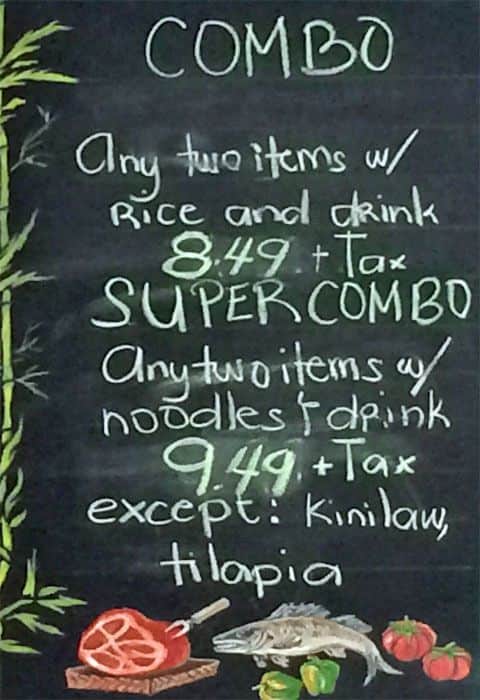 COMBO
Any two items w/
Rice and drink
8.49 + Tax
SUPER COMBO
Any two items w/
noodles & drink
9.49 + Tax
except: Kinilaw,
tilapia